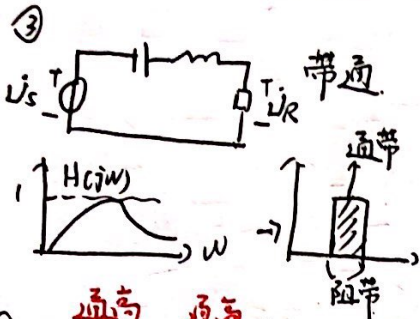 ③
U̇s + - + U̇R - 带通
1 H(jω) ω → 通带
阻带
通高 通高